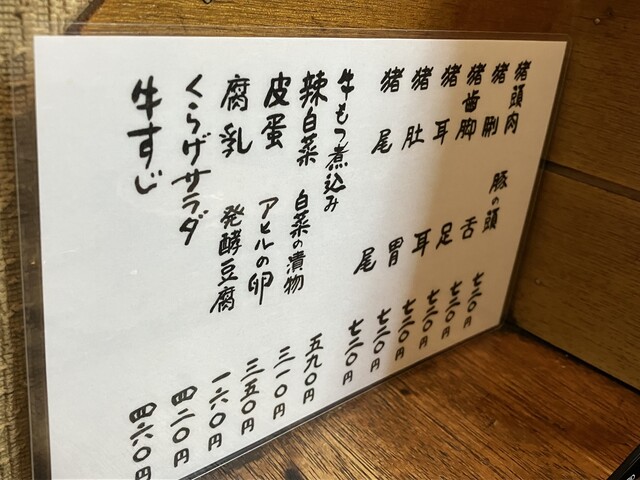 猪頭肉 豚の頭 七二〇円
猪脷 舌 七二〇円
猪歯脚 足 七二〇円
猪耳 耳 七二〇円
猪肚 胃 七二〇円
猪尾 尾 七二〇円
牛もつ煮込み 五九〇円
辣白菜 白菜の漬物 三一〇円
皮蛋 アヒルの卵 三五〇円
腐乳 発酵豆腐 一六〇円
くらげサラダ 四二〇円
牛すじ 四六〇円